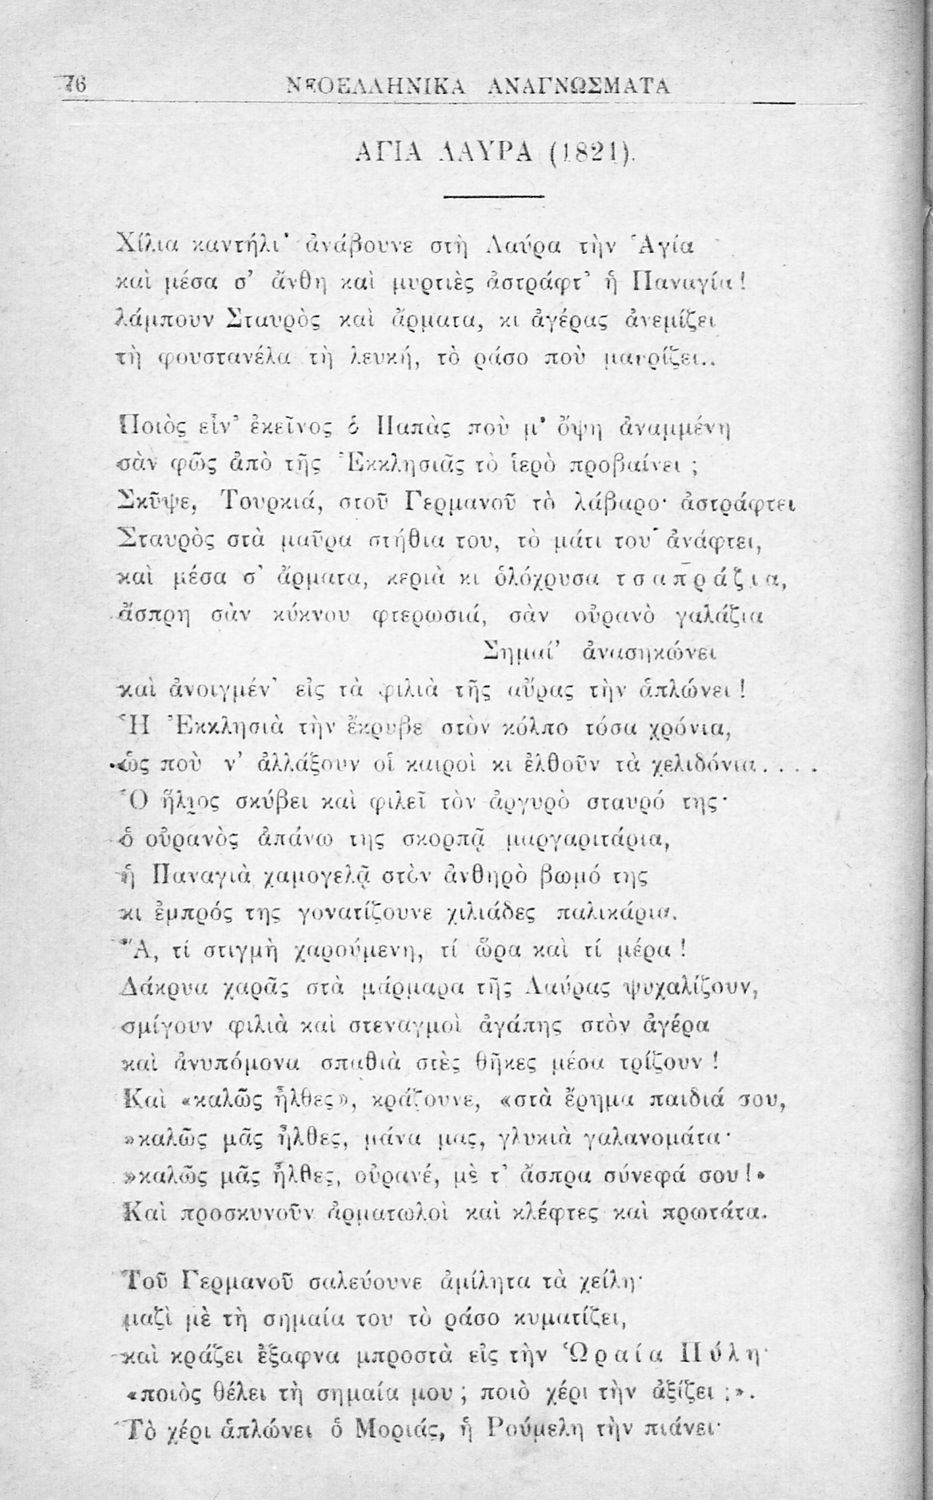 76 ΝΕΟΕΛΛΗΝΙΚΑ ΑΝΑΓΝΩΣΜΑΤΑ
ΑΓΙΑ ΛΑΥΡΑ (1821).
Χίλια καντήλι' ἀνάβουνε στὴ Λαύρα τὴν Ἁγία
καὶ μέσα σ' ἄνθη καὶ μυρτιὲς ἀστράφτ' ἡ Παναγία!
λάμπουν Σταυρὸς καὶ ἄρματα, κι ἀγέρας ἀνεμίζει
τὴ φουστανέλα τὴ λευκή, τὸ ράσο ποὺ μαυρίζει..
Ποιὸς εἶν' ἐκεῖνος ὁ Παπὰς ποὺ μ' ὄψη ἀναμμένη
σὰν φῶς ἀπὸ τῆς Ἐκκλησιᾶς τὸ ἱερὸ προβαίνει ;
Σκῦψε, Τουρκιά, στοῦ Γερμανοῦ τὸ λάβαρο· ἀστράφτει
Σταυρὸς στὰ μαῦρα στήθια του, τὸ μάτι του ἀνάφτει,
καὶ μέσα σ' ἄρματα, κεριὰ κι ὁλόχρυσα τσαπράζια,
ἄσπρη σὰν κύκνου φτερωσιά, σὰν οὐρανὸ γαλάζια
Σημαί' ἀνασηκώνει
καὶ ἀνοιγμέν' εἰς τὰ φιλιὰ τῆς αὔρας τὴν ἁπλώνει !
Ἡ Ἐκκλησιὰ τὴν ἔκρυβε στὸν κόλπο τόσα χρόνια,
ὡς ποὺ ν' ἀλλάξουν οἱ καιροὶ κι ἐλθοῦν τὰ χελιδόνια. . . .
Ὁ ἥλιος σκύβει καὶ φιλεῖ τὸν ἀργυρὸ σταυρό της·
ὁ οὐρανὸς ἀπάνω της σκορπᾷ μαργαριτάρια,
ἡ Παναγιὰ χαμογελᾷ στὸν ἀνθηρὸ βωμό της
κι ἐμπρός της γονατίζουνε χιλιάδες παλικάρια.
Ἄ, τί στιγμὴ χαρούμενη, τί ὥρα καὶ τί μέρα !
Δάκρυα χαρᾶς στὰ μάρμαρα τῆς Λαύρας ψυχαλίζουν,
σμίγουν φιλιὰ καὶ στεναγμοὶ ἀγάπης στὸν ἀγέρα
καὶ ἀνυπόμονα σπαθιὰ στὲς θῆκες μέσα τρίζουν !
Καὶ «καλῶς ἦλθες», κράζουνε, «στὰ ἔρημα παιδιά σου,
»καλῶς μᾶς ἦλθες, μάνα μας, γλυκιὰ γαλανομάτα·
»καλῶς μᾶς ἦλθες, οὐρανέ, μὲ τ' ἄσπρα σύνεφά σου!»
Καὶ προσκυνοῦν ἀρματωλοὶ καὶ κλέφτες καὶ πρωτάτα.
Τοῦ Γερμανοῦ σαλεύουνε ἀμίλητα τὰ χείλη·
μαζὶ μὲ τὴ σημαία του τὸ ράσο κυματίζει,
καὶ κράζει ἔξαφνα μπροστὰ εἰς τὴν Ὡραία Πύλη·
«ποιὸς θέλει τὴ σημαία μου ; ποιὸ χέρι τὴν ἀξίζει ;».
Τὸ χέρι ἁπλώνει ὁ Μοριάς, ἡ Ρούμελη τὴν πιάνει·